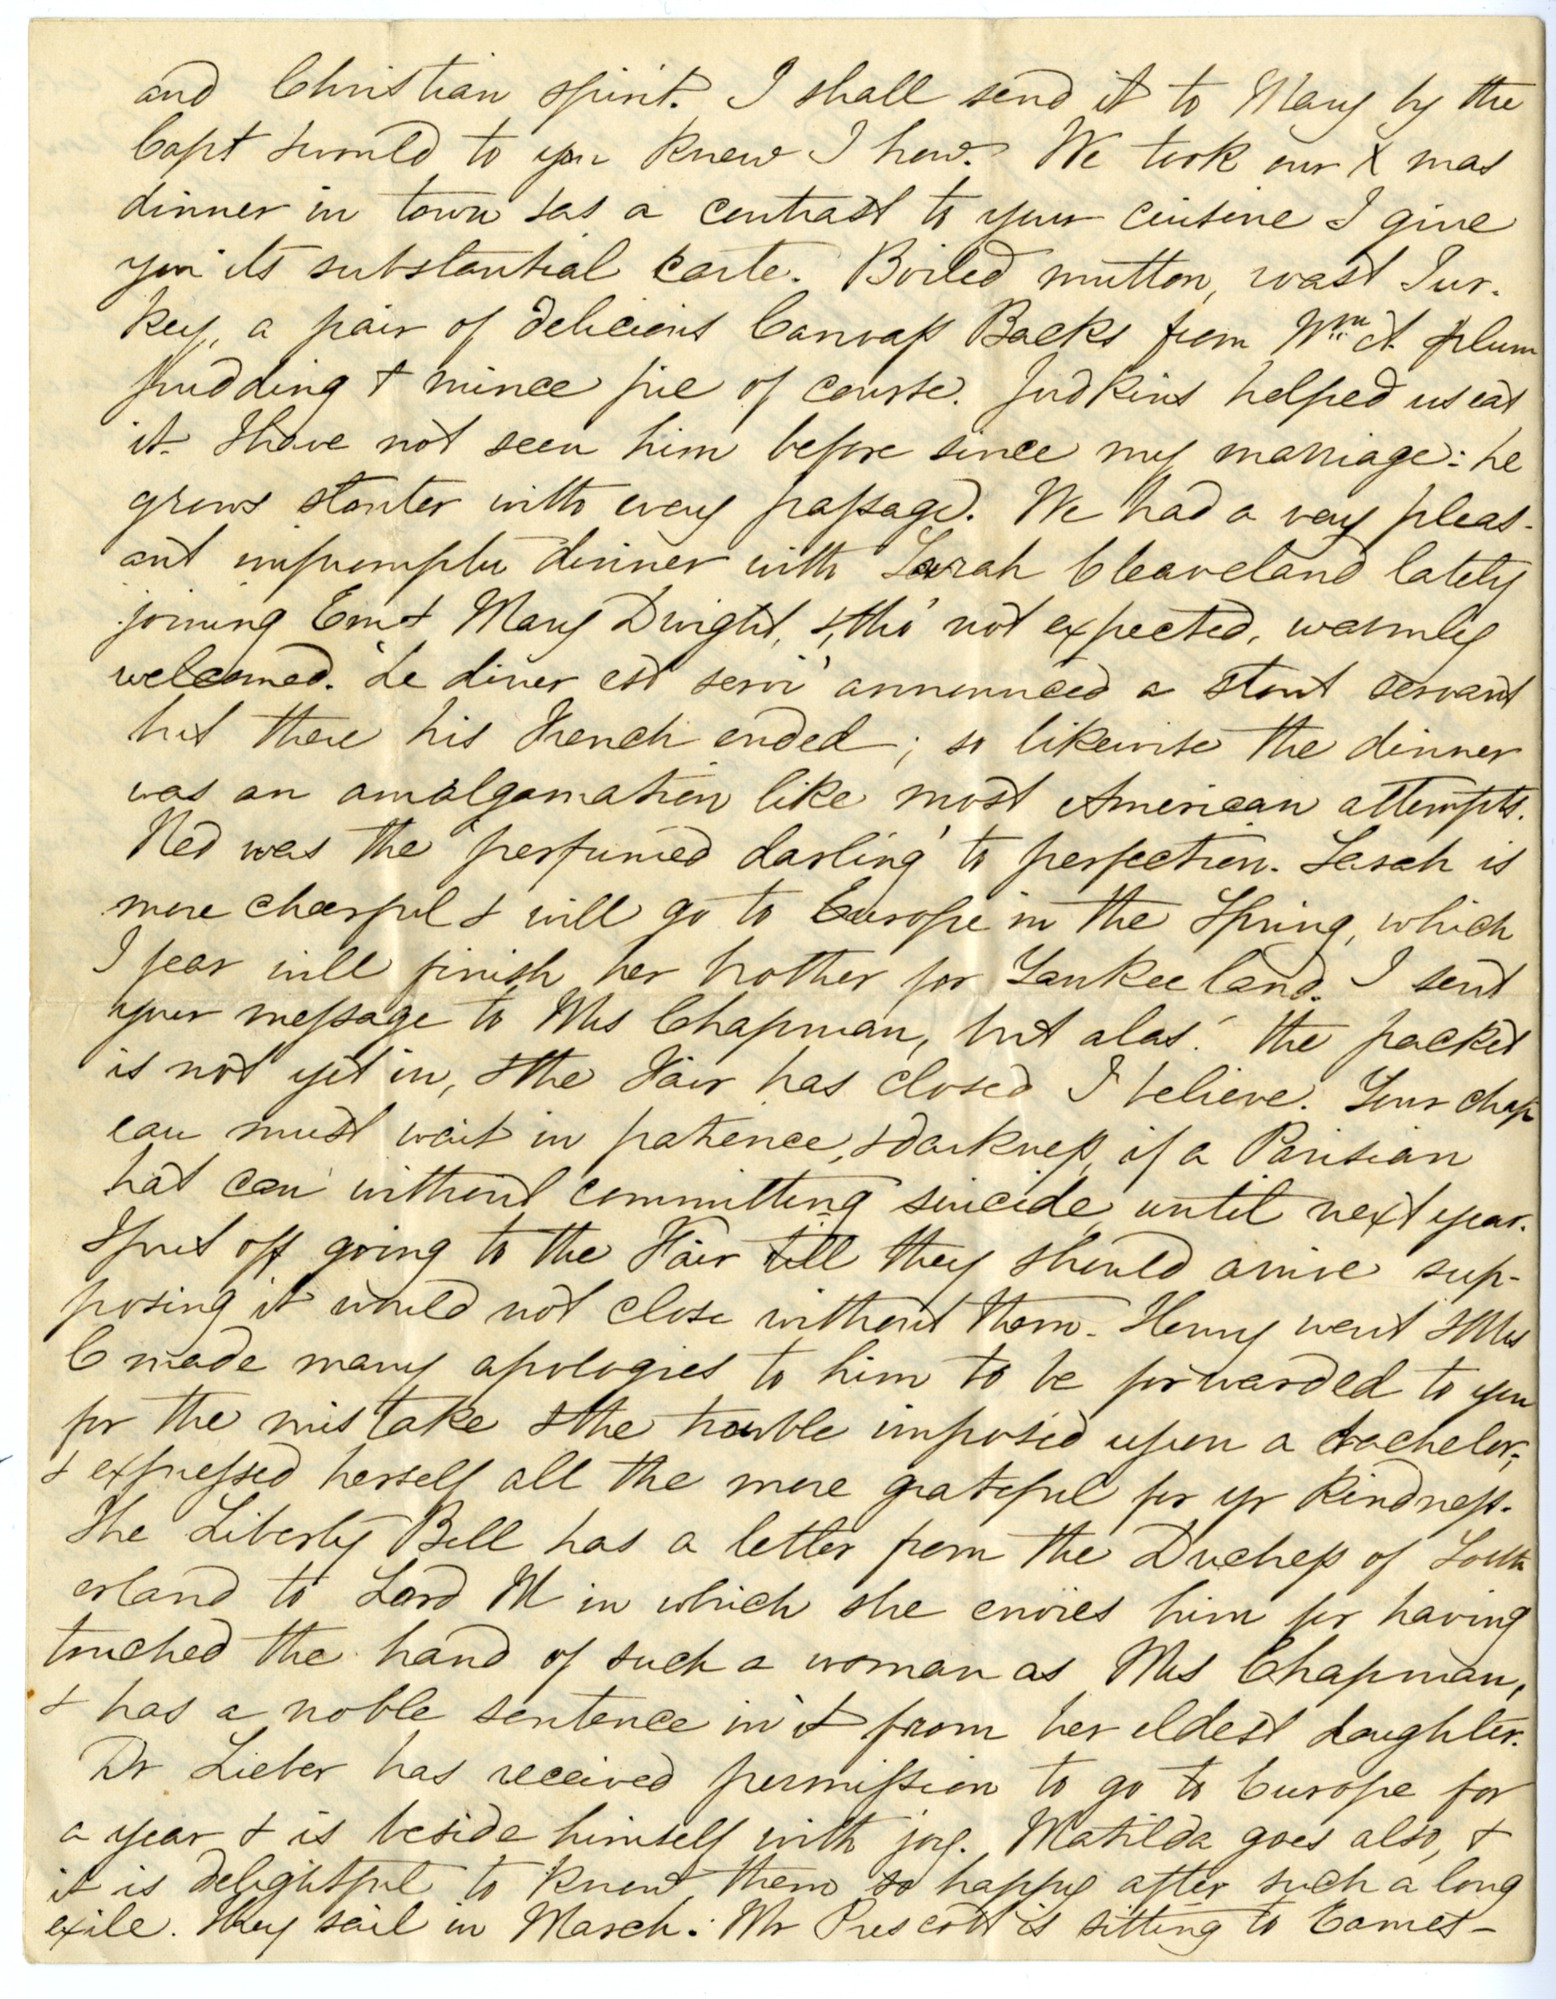 and Christian spirit. I shall send it to Mary by the
Capt & would to you knew I how. We took our X mas
dinner in town & as a contrast to your cuisine I give
you its substantial carte. Boiled mutton, roast Tur-
key, a pair of delicious Canvass Backs from Wm A. plum
pudding & mince pie of course. Judkins helped us eat
it. I have not seen him before since my marriage: he
grows stouter with every passage. We had a very pleas-
ant impromptu dinner with Sarah Cleaveland lately
joining Em & Mary Dwight, &, tho' not expected, warmly
welcomed. 'Le diner est servi' announced a stout servant
but there his French ended; so likewise the dinner
was an amalgamation like most American attempts.
Ned was the 'perfumed darling' to perfection. Sarah is
more cheerful & will go to Europe in the Spring, which
I fear will finish her brother for Yankee land. I sent
your message to Mrs Chapman, but alas! the packet
is not yet in, & the Fair has closed I believe. Your chap
eau must wait in patience, & darkness, if a Parisian
hat can without committing suicide, until next year.
I put off going to the Fair till they should arrive sup-
posing it would not close without them. Henry went & Mrs
C made many apologies to him to be forwarded to you
for the mistake & the trouble imposed upon a bachelor;
& expressed herself all the more grateful for yr kindness.
The Liberty Bell has a letter from the Duchess of South
erland to Lord M in which she envies him for having
touched the hand of such a woman as Mrs Chapman,
& has a noble sentence in it from her eldest daughter.
Dr Lieber has received permission to go to Europe for
a year & is beside himself with joy. Matilda goes also, &
it is delightful to know them so happy after such a long
exile. They sail in March. Mr Prescott is sitting to Comes-